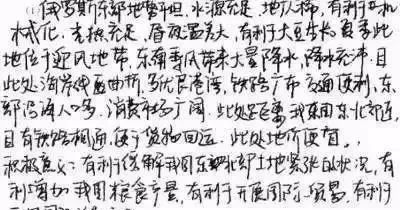 俄罗斯东部地势平坦,水源充足,地广人稀,有利于机
械化,光照充足,昼夜温差大,有利于大豆生长,夏季此
地位于迎风地带,东南季风带来大量降水,降水充沛。且
此处海岸线曲折,多优良港湾,铁路广布,交通便利,东
部沿海人口多,消费市场广阔。此处距离我国东北部近,
且有铁路相通,便于货物回运。此处地价便宜。
积极意义:有利于缓解我国东北部土地紧张的状况,有
利增加我国粮食产量,有利于开展国际贸易,有利于